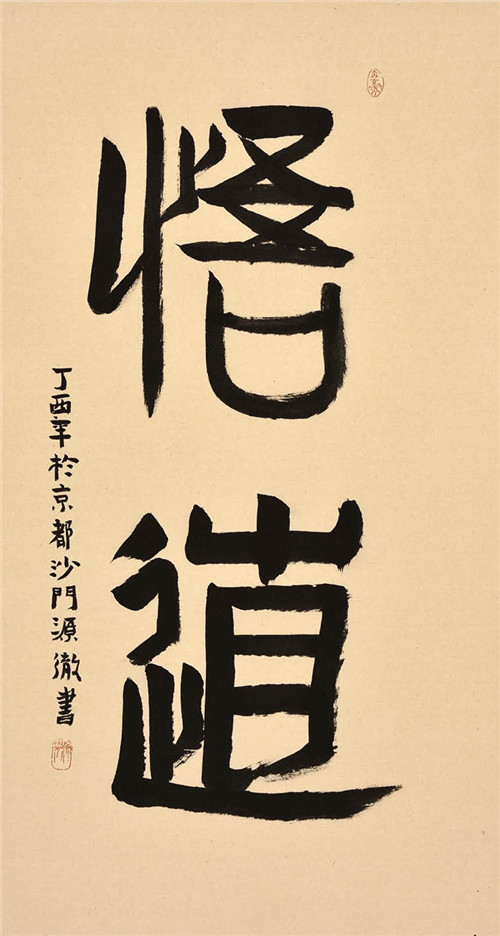 悟道
丁酉年於京都沙門源徹書